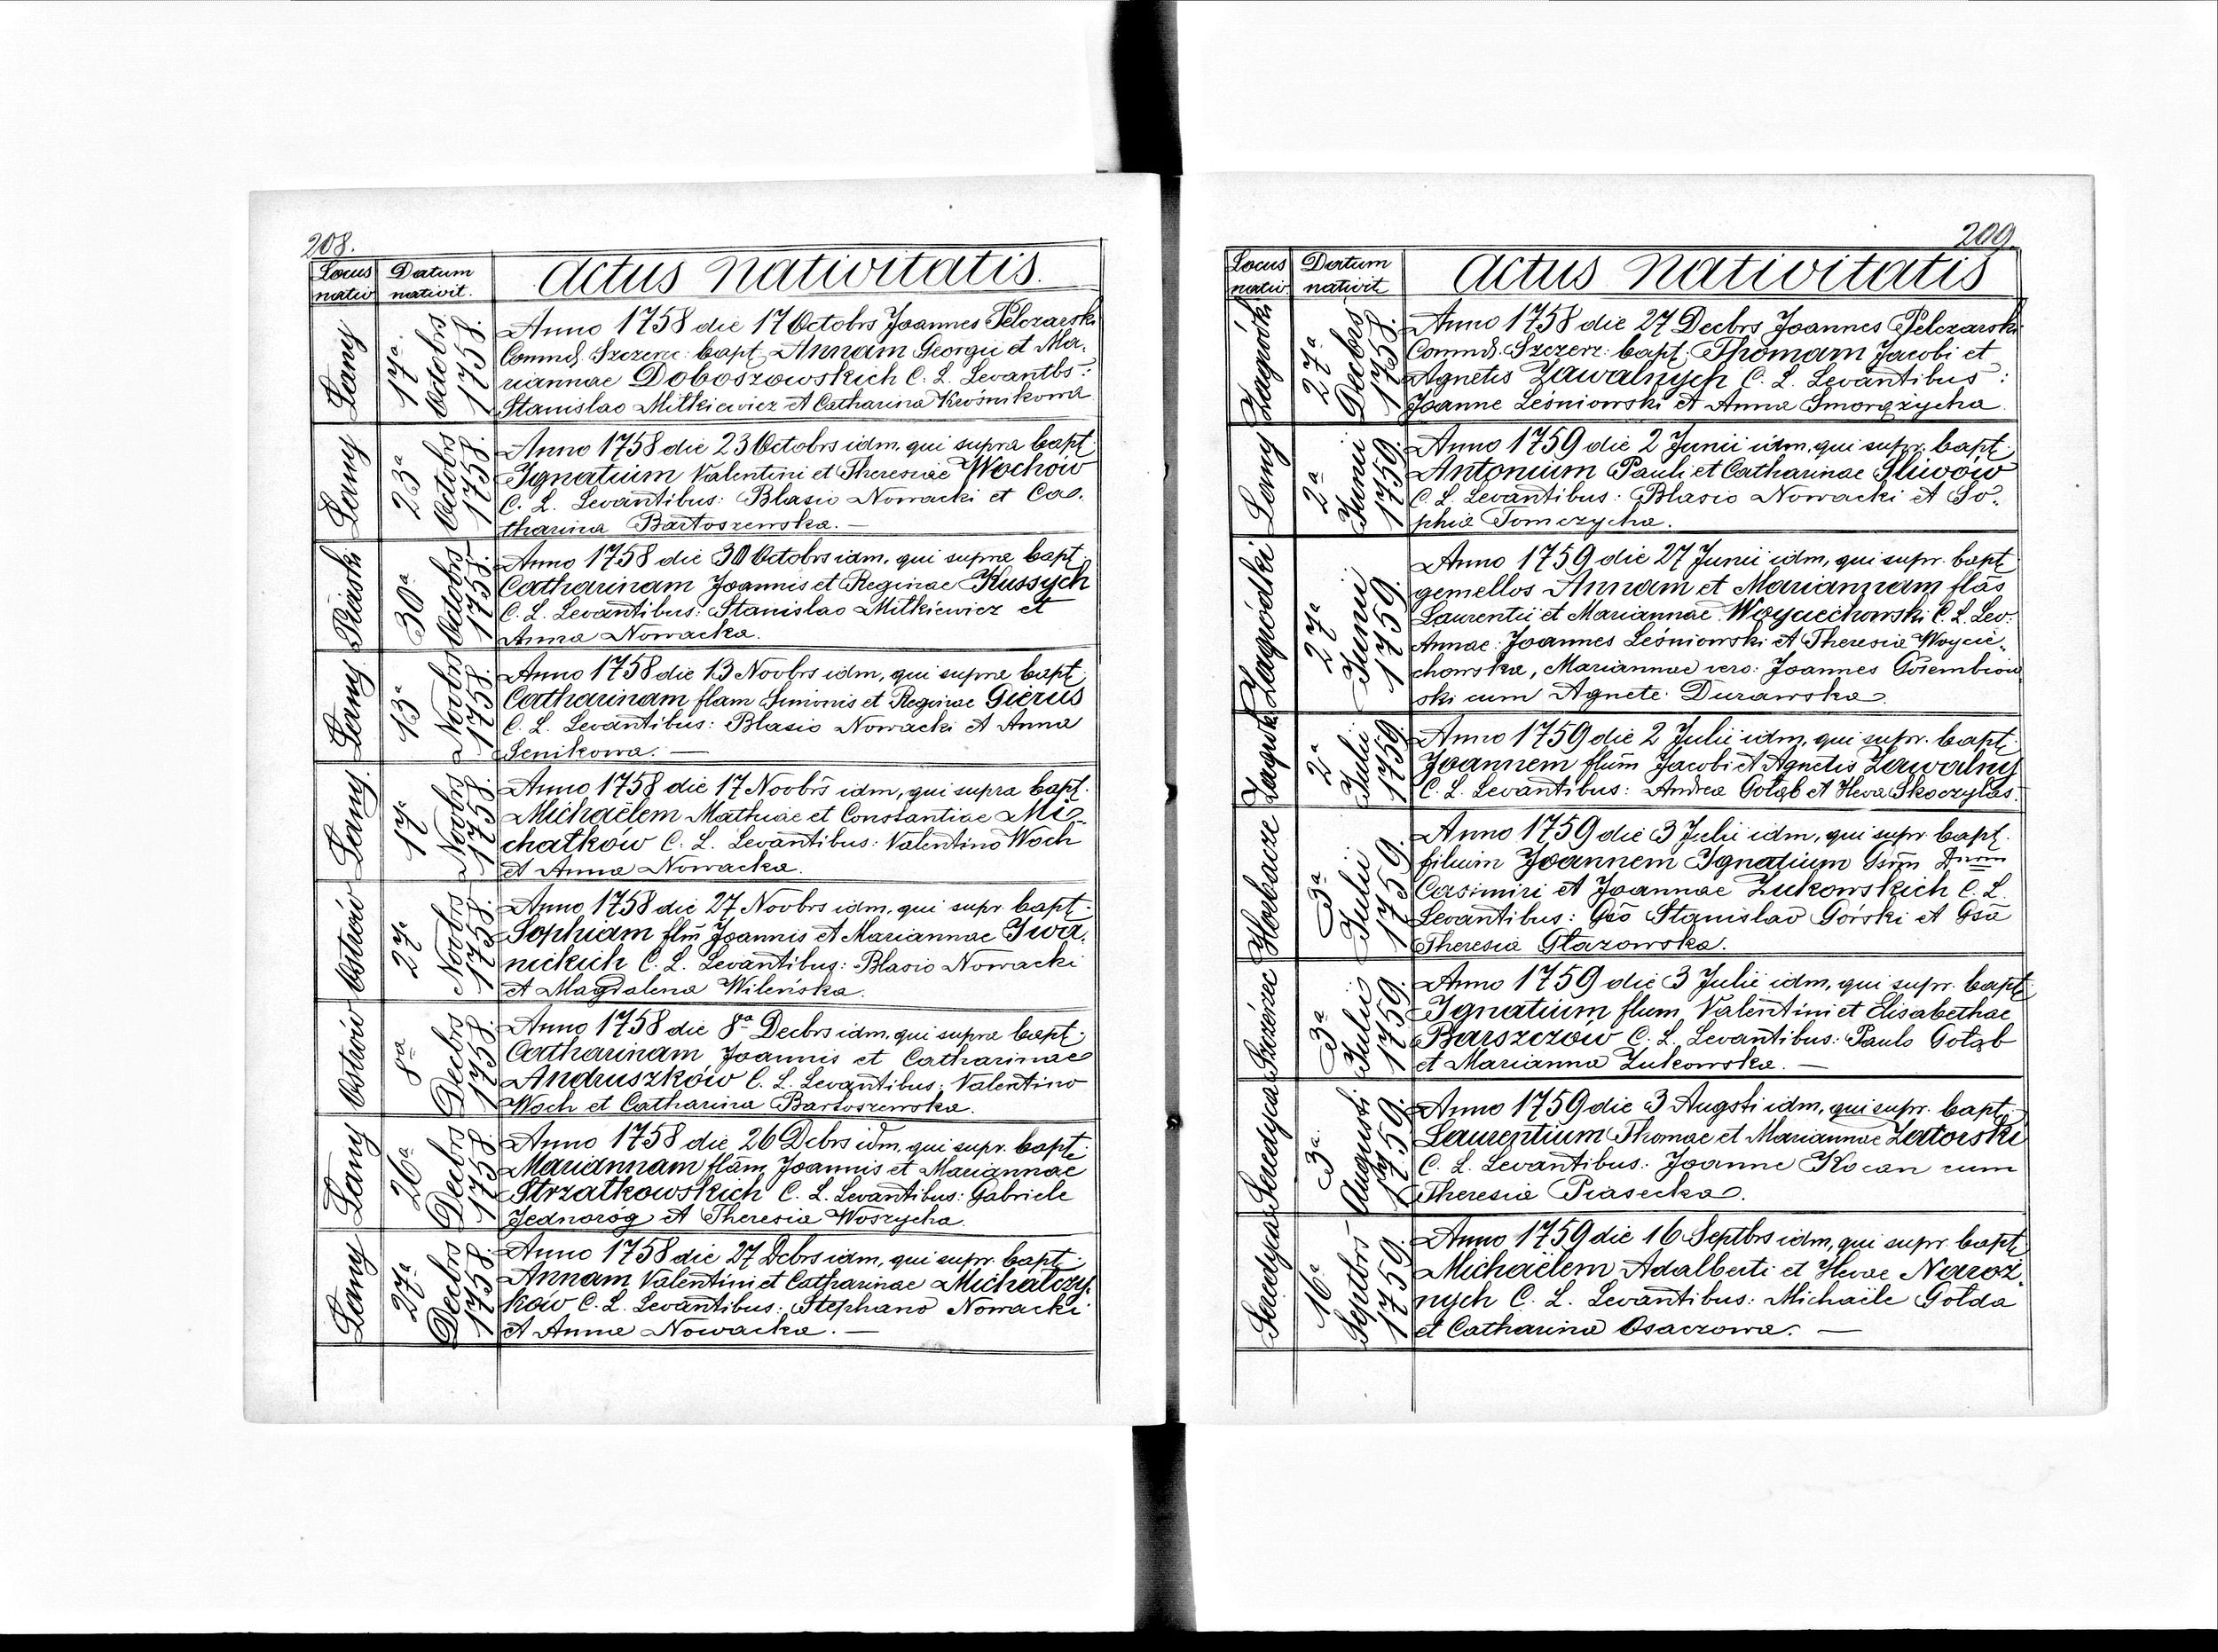 208.
Locus nativ
Datum nativit.
Actus Nativitatis.
Łany
17a Octobrs 1758.
Anno 1758 die 17 Octobrs Joannes Pelczarski
Commd. Szczerc: bapt. Annam Georgii et Ma-
riannae Doboszowskich C. L. Levantbs:
Stanislao Mitkiewicz et Catharina Krośnikowa
Łany
23a Octobrs 1758.
Anno 1758 die 23 Octobrs idm, qui supra bapt.
Ignatium Valentini et Theresiae Wochów
C. L. Levantibus: Blasio Nowacki et Ca-
tharina Bartoszewska. —
Piaski
30a Octobrs 1758.
Anno 1758 die 30 Octobrs idm, qui supra bapt.
Catharinam Joannis et Reginae Kussych
C. L. Levantibus: Stanislao Mitkiewicz et
Anna Nowacka.
Łany
13a Novbrs 1758.
Anno 1758 die 13 Novbrs idm, qui supra bapt.
Catharinam flam Simonis et Reginae Gierus
C. L. Levantibus: Blasio Nowacki et Anna
Senikowa. —
Łany.
17a Novbrs 1758.
Anno 1758 die 17 Novbrs idm, qui supra bapt.
Michaëlem Mathiae et Constantiae Mi-
chałków C. L. Levantibus: Valentino Woch
et Anna Nowacka.
Ostrów
27a Novbrs 1758.
Anno 1758 die 27 Novbrs idm, qui supr. bapt.
Sophiam flm Joannis et Mariannae Iwa-
nickich C. L. Levantibus: Blasio Nowacki
et Magdalena Wileńska.
Ostrów
8a Decbrs 1758.
Anno 1758 die 8a Decbrs idm, qui supra bapt.
Catharinam Joannis et Catharinae
Andruszków C. L. Levantibus: Valentino
Woch et Catharina Bartoszewska.
Łany
26a Decbrs 1758.
Anno 1758 die 26 Debrs idm, qui supr. bapt.
Mariannam flam Joannis et Mariannae
Strzałkowskich C. L. Levantibus: Gabriele
Jednoróg et Theresia Woszycha.
Łany
27a Decbrs 1758.
Anno 1758 die 27 Debrs idm, qui supr. bapt.
Annam Valentini et Catharinae Michalczy-
ków C. L. Levantibus: Stephano Nowacki
et Anna Nowacka. —
209.
Locus nativ.
Datum nativit
Actus Nativitatis
Zagródki
27a Decbrs 1758.
Anno 1758 die 27 Decbrs Joannes Pelczarski
Commd. Szczerz: bapt. Thomam Jacobi et
Agnetis Zawalnych C. L. Levantibus:
Joanne Leśniowski et Anna Smorążycha.
Łany
2a Junii 1759.
Anno 1759 die 2 Junii idm, qui supr. bapt.
Antonium Pauli et Catharinae Śliwów
C. L. Levantibus: Blasio Nowacki et So-
phia Tomczycha.
Zagródki
27a Junii 1759.
Anno 1759 die 27 Junii idm, qui supr. bapt.
gemellos Annam et Mariannam flas
Laurentii et Mariannae Woyciechowski C. L. Lev:
Annae: Joannes Leśniowski et Theresia Woycie-
chowska, Mariannae vero: Joannes Gołembiow
ski cum Agnete Durawska.
2a Julii 1759
Anno 1759 die 2 Julii idm, qui supr. bapt.
Joannem flum Jacobi et Agnetis Zawalny
C. L. Levantibus: Andrea Gołąb et Heva Skoczylas.
Horbacze
3a Julii 1759.
Anno 1759 die 3 Julii idm, qui supr. bapt.
filium Joannem Ignatium Gsrm Dnrm
Casimiri et Joannae Żukowskich C. L.
Levantibus: Gso Stanislao Górski et Gsa
Theresia Głazowska.
Szczérzec
3a Julii 1759
Anno 1759 die 3 Julii idm, qui supr. bapt.
Ignatium flum Valentini et Elisabethae
Barszczów C. L. Levantibus: Paulo Gołąb
et Marianna Żukowska. —
Seredyca
3a Augusti 1759.
Anno 1759 die 3 Augsti idm, qui supr. bapt.
Laurentium Thomae et Mariannae Zatorski
C. L. Levantibus: Joanne Kocan cum
Theresia Piasecka.
Seredyca
16a Septbrs 1759.
Anno 1759 die 16 Septbrs idm, qui supr. bapt.
Michaëlem Adalberti et Hevae Naroż-
nych C. L. Levantibus: Michaële Gołda
et Catharina Osaczowa. —